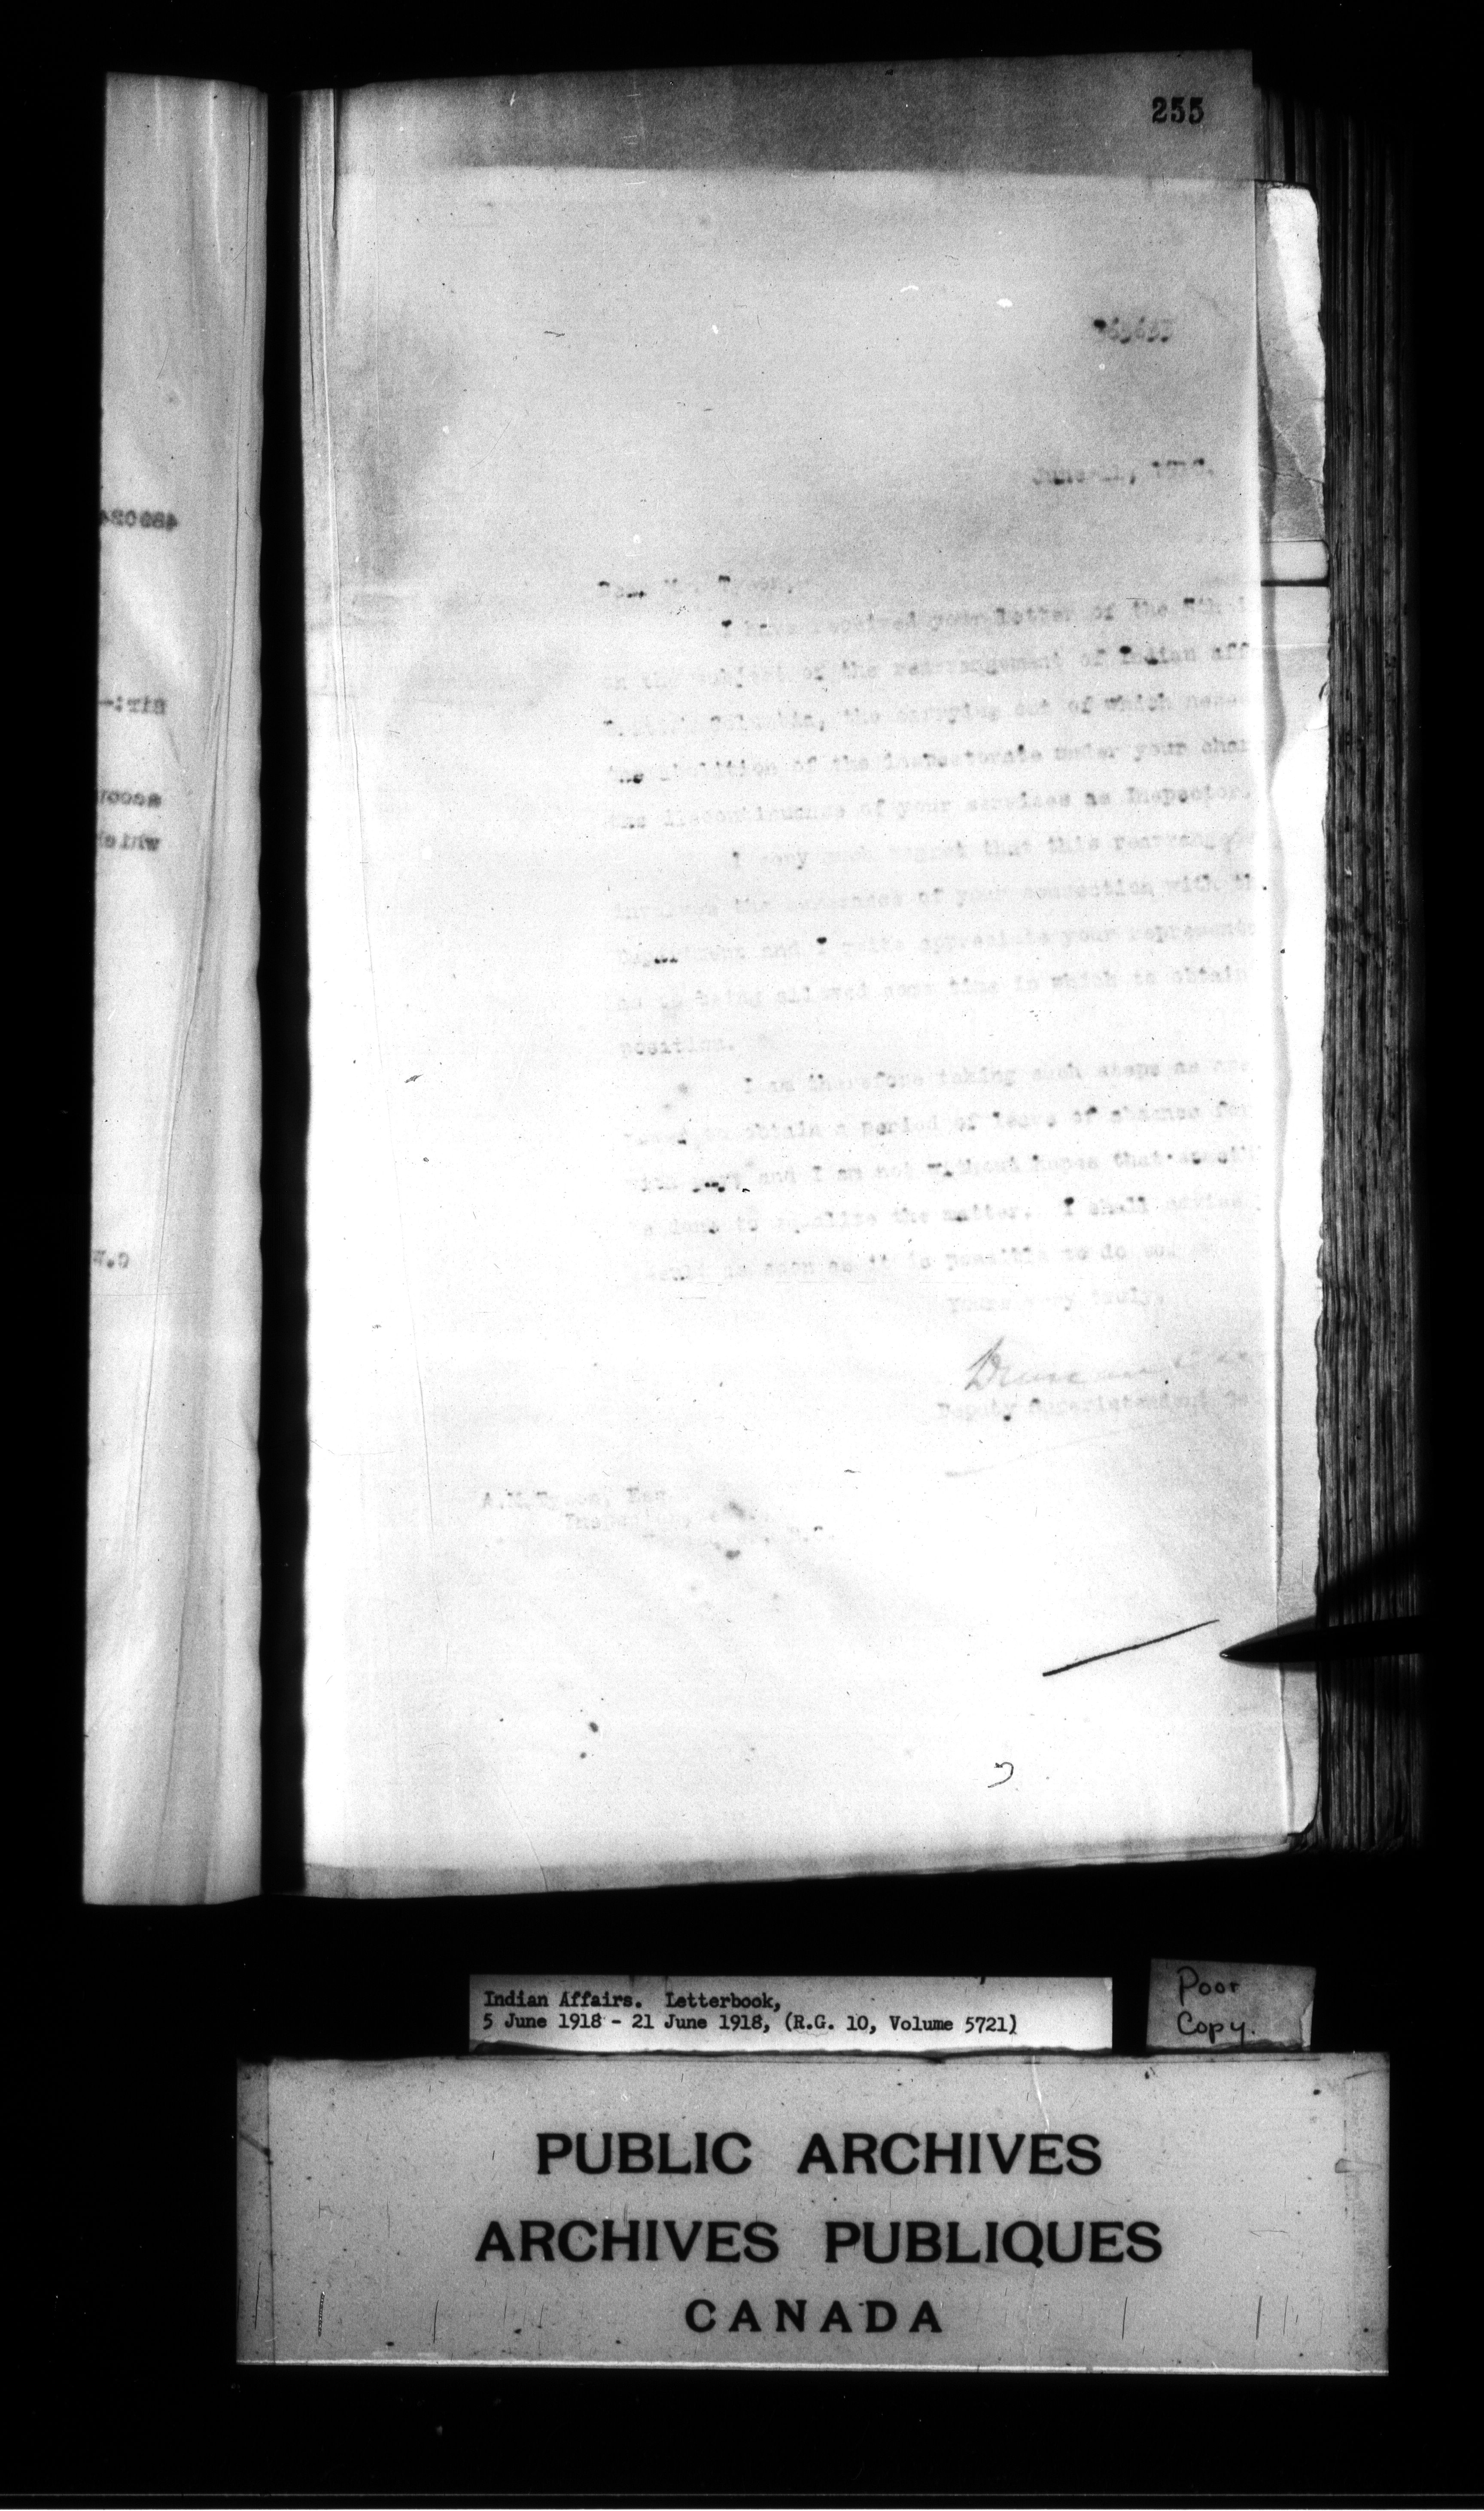 255
June 11, 1918.
Dear Mr. Tyson,
I have received your letter of the 5th
on the subject of the rearrangement of Indian aff
British Columbia, the carrying out of which neces
the abolition of the inspectorate under your char
the discontinuance of your services as Inspector.
I very much regret that this rearrangem
involves the severance of your connection with th
Department and I quite appreciate your representa
as to being allowed some time in which to obtain
position.
I am therefore taking such steps as are
to obtain a period of leave of absence for
with pay and I am not without hopes that
be done to equalize the matter. I shall advise
result as soon as it is possible to do so.
Yours very truly,
Duncan
Deputy Superintendent Ge
A.M.Tyson, Esq.
Inspector,
B.C.
489024
Sir:-
accou
which
Indian Affairs. Letterbook,
5 June 1918 - 21 June 1918, (R.G. 10, Volume 5721)
Poor
Copy.
PUBLIC ARCHIVES
ARCHIVES PUBLIQUES
CANADA